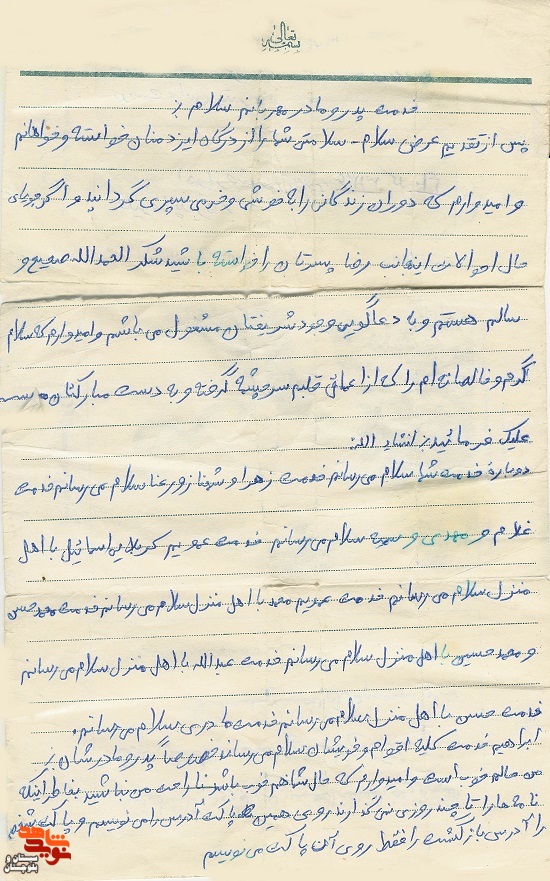 بسمه تعالی
خدمت پدر و مادر مهربانم سلام ./
پس از تقدیم عرض سلام – سلامتی شما را از درگاه ایزد منان خواسته و خواهانم
و امیدوارم که دوران زندگانی را با خوشی و خرمی سپری گردانید و اگر جویای
حال و احوالات اینجانب رضا پسرتان را خواسته باشید شکر الحمدالله صحیح و
سالم هستم و به دعاگویی وجود شریفتان مشغول می باشم و امیدوارم که سلام
گرم و خالصانه ام را که از اعماق قلبم سرچشمه گرفته و به دست مبارکتان
علیک فرمائید ./ انشاء الله
دوباره خدمت شما سلام می رسانم خدمت زهرا و سلام می رسانم خدمت
غلام و مهدی و سمیه سلام می رسانم خدمت عمویم کربلایی اسمائیل با اهل
منزل سلام می رسانم خدمت عمویم محمد با اهل منزل سلام می رسانم خدمت محمد حسن
و محمد حسین با اهل منزل سلام می رسانم خدمت عبدالله با اهل منزل سلام می رسانم
خدمت حسن با اهل منزل سلام می رسانم خدمت سلام می رسانم .
ابراهیم خدمت کلیه اقوام و خویشان سلام می رساند خصوصاً پدر و مادرشان ./
من حالم خوب است و امیدوارم که حال شما هم خوب باشد ناراحت من نباشید بخاطر اینکه
نامه ها را تا چند روزی نمی گذارند روی همین پاکت آدرس را می نویسم و پاکت سفید
را آدرس بازگشت را فقط روی آن پاکت می نویسم
نوید شاهد
سیستان و بلوچستان